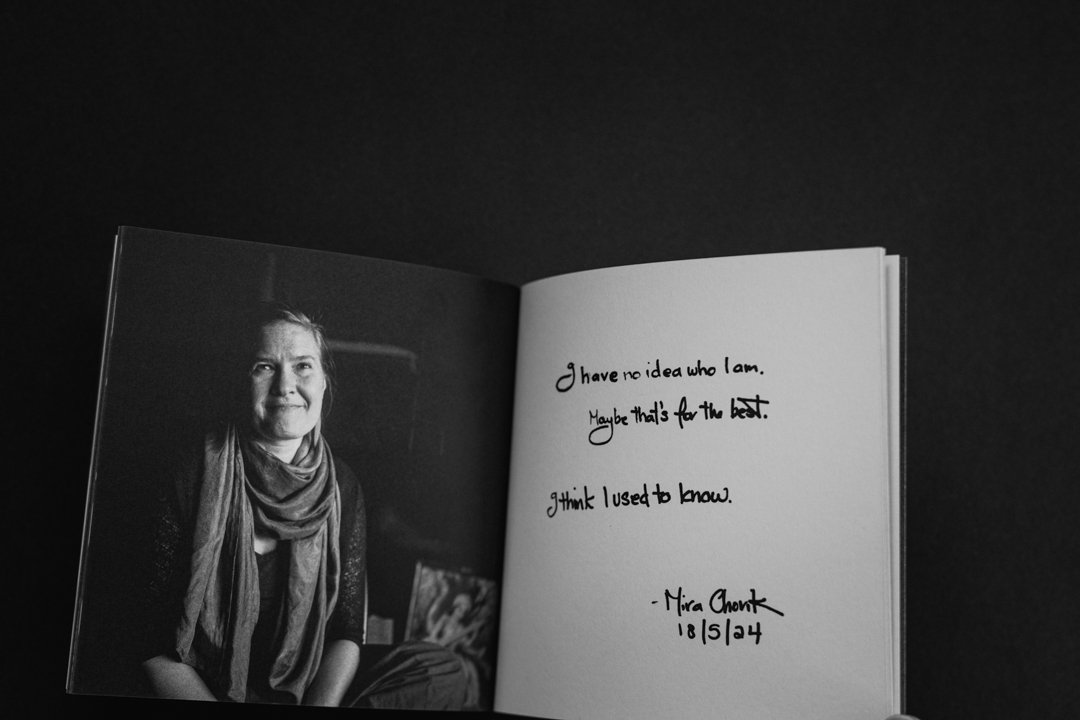 I have no idea who I am.
Maybe that's for the best.
I think I used to know.
- Mira Chonk
18/5/24